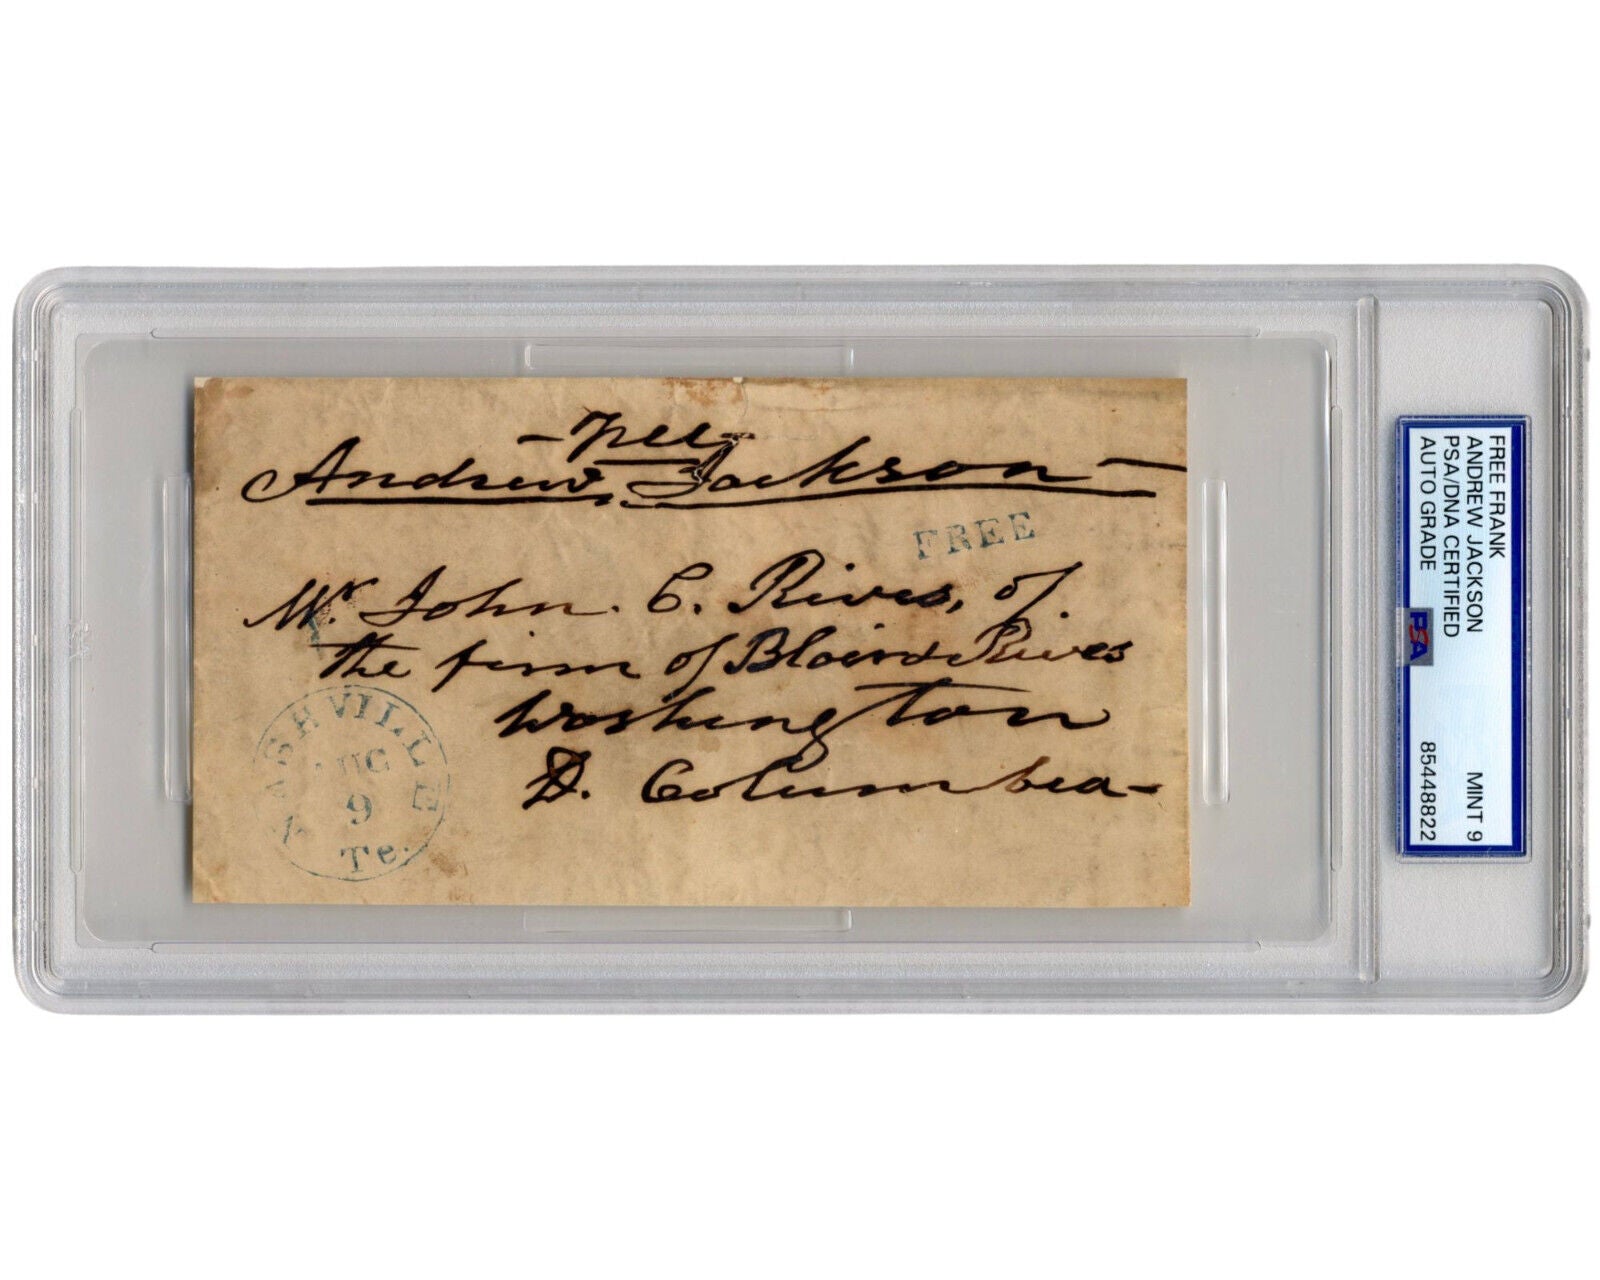 - Free
Andrew Jackson -
FREE
Mr. John. C. Rives, of.
the firm of Blair & Rives
Washington
D. Columbia -
NASHVILLE
AUG
9
Te.
FREE FRANK
ANDREW JACKSON
PSA/DNA CERTIFIED
AUTO GRADE
MINT 9
85448822
PSA